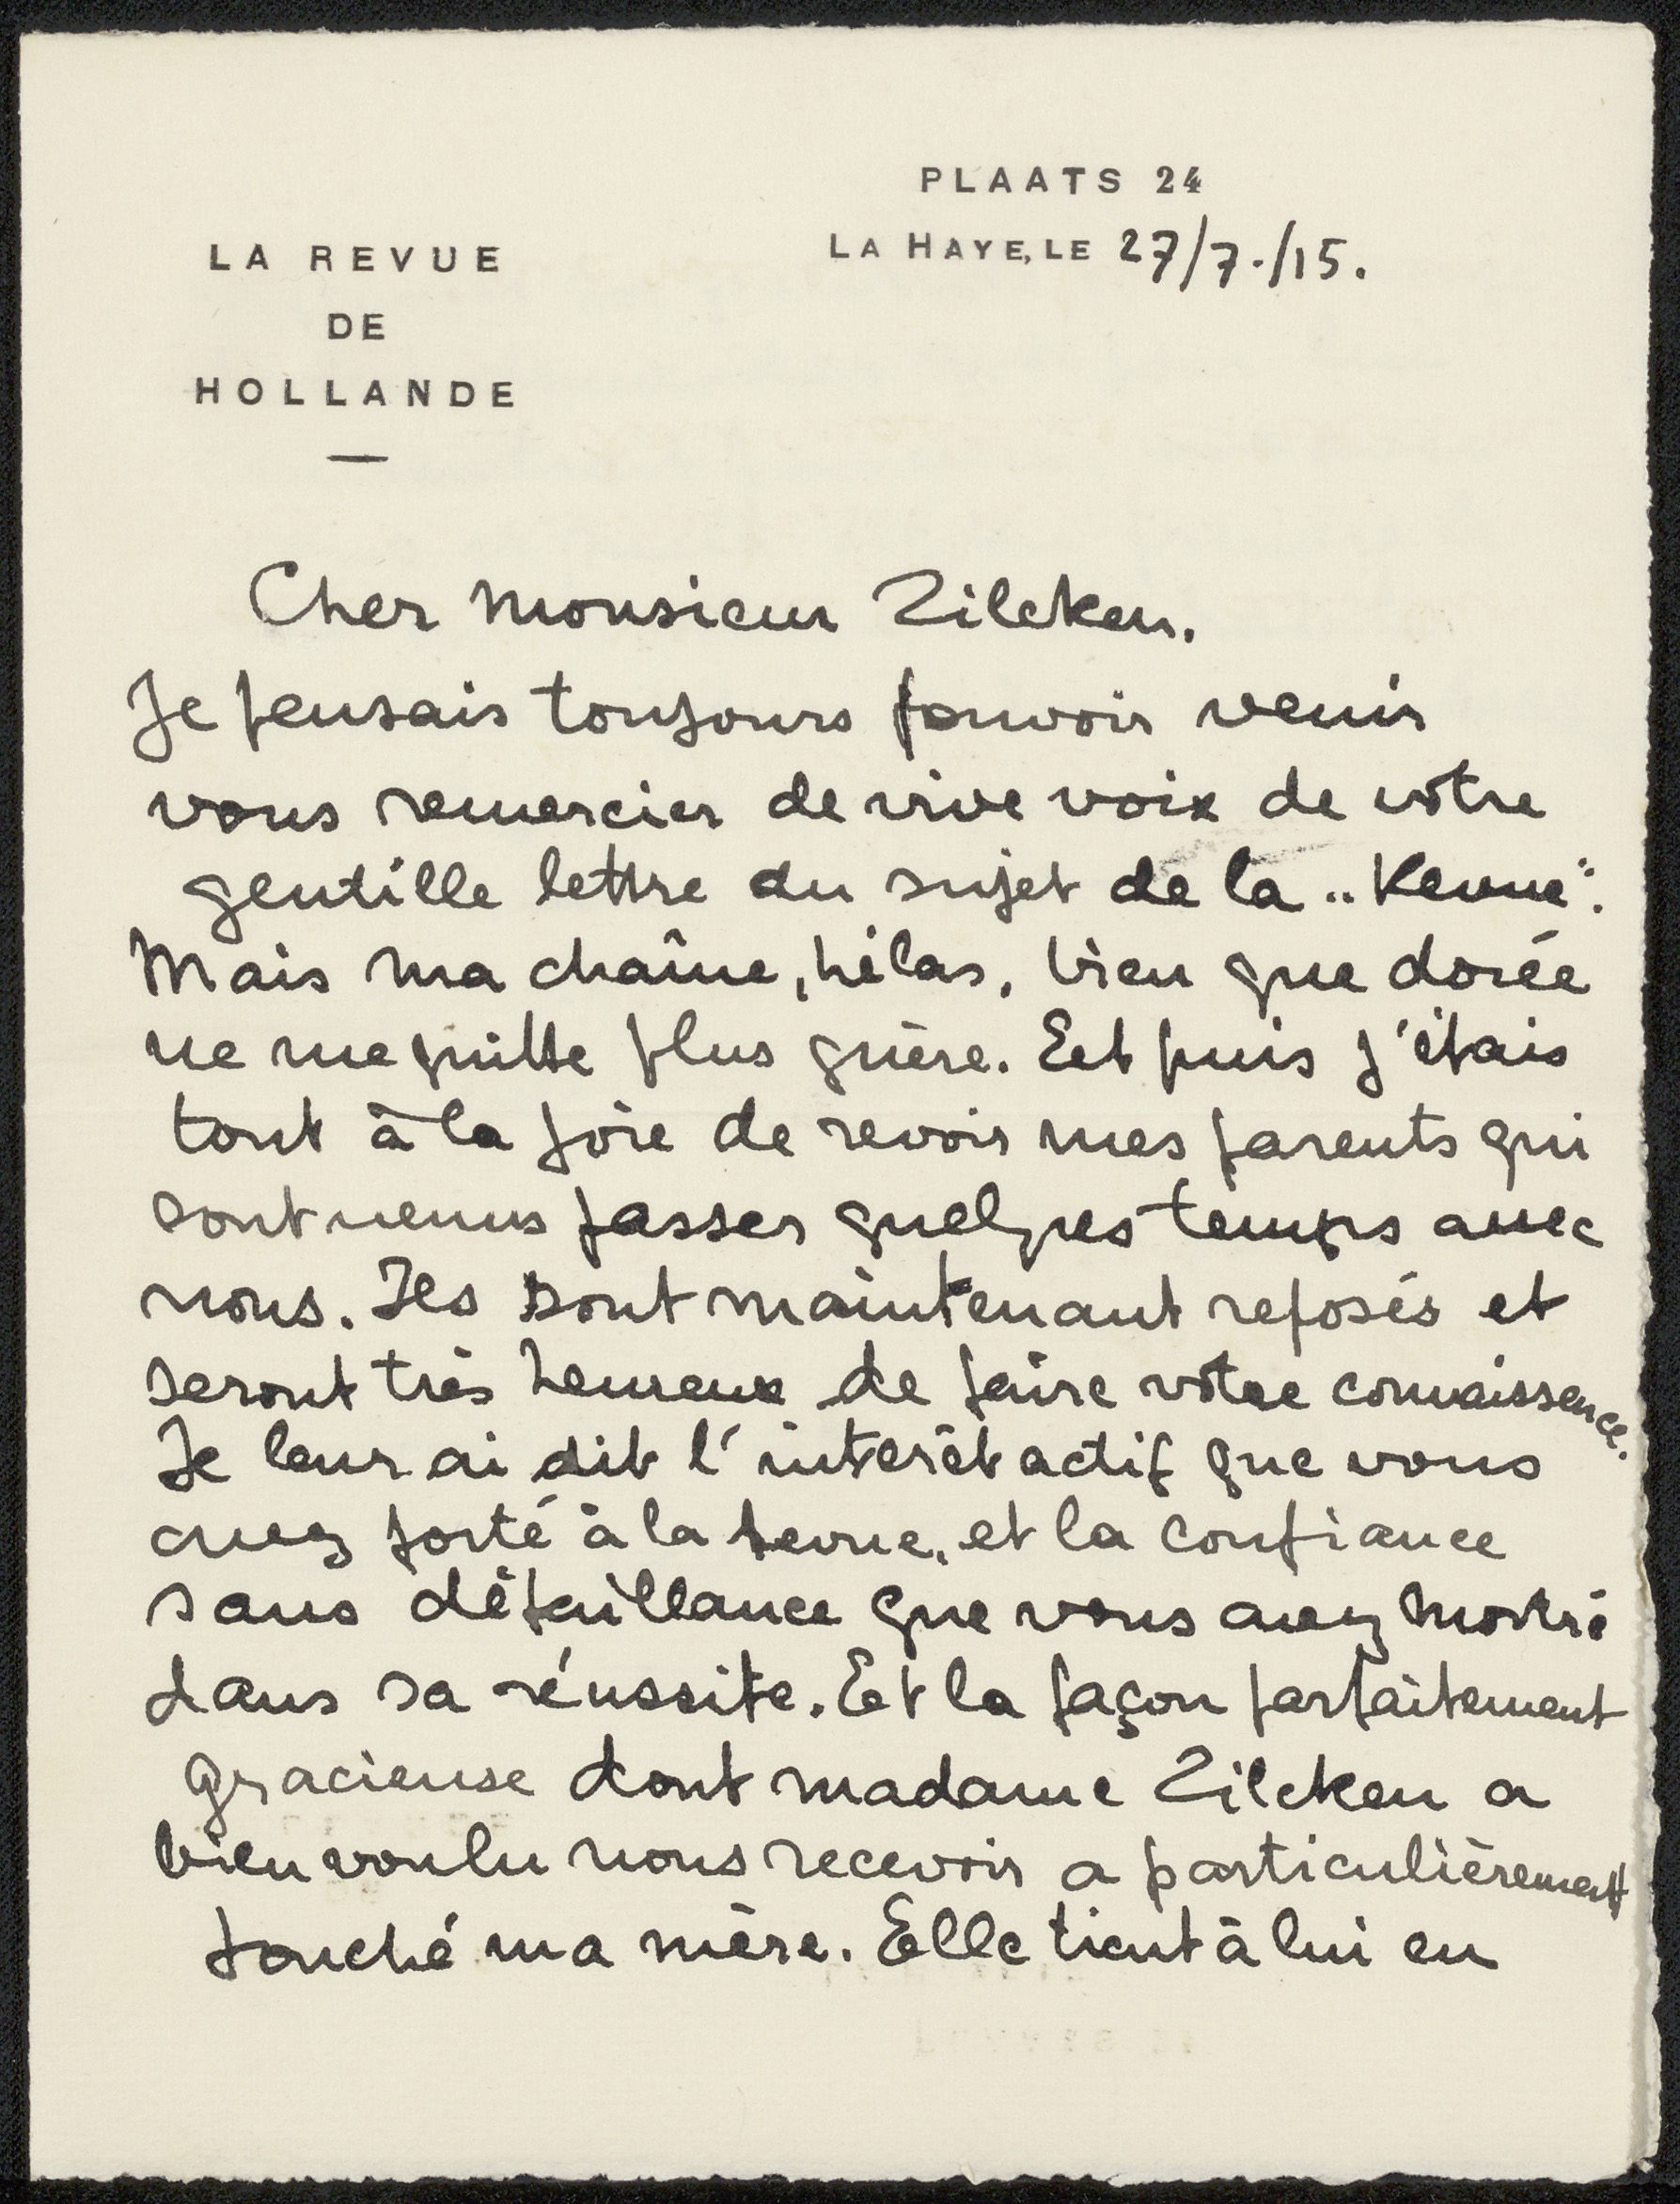 PLAATS 24
LA HAYE, LE 27/7./15.
LA REVUE
DE
HOLLANDE
Cher Monsieur Zilcken.
Je pensais toujours pouvoir venir
vous remercier de vive voix de votre
gentille lettre au sujet de la „Revue".
Mais ma chaîne, hélas, bien que dorée
ne me quitte plus guère. Eet puis j'étais
tout à la joie de revoir mes parents qui
sont venus passer quelques temps avec
nous. Ils sont maintenant reposés et
seront très heureux de faire votre connaissence.
Je leur ai dit l'interêt actif que vous
avez porté à la revue, et la confiance
sans défaillance que vous avez montré
dans sa réussite. Eet la façon parfaitement
gracieuse dont madame Zilcken a
bien voulu nous recevoir a particulièrement
touché ma mère. Elle tient à lui en